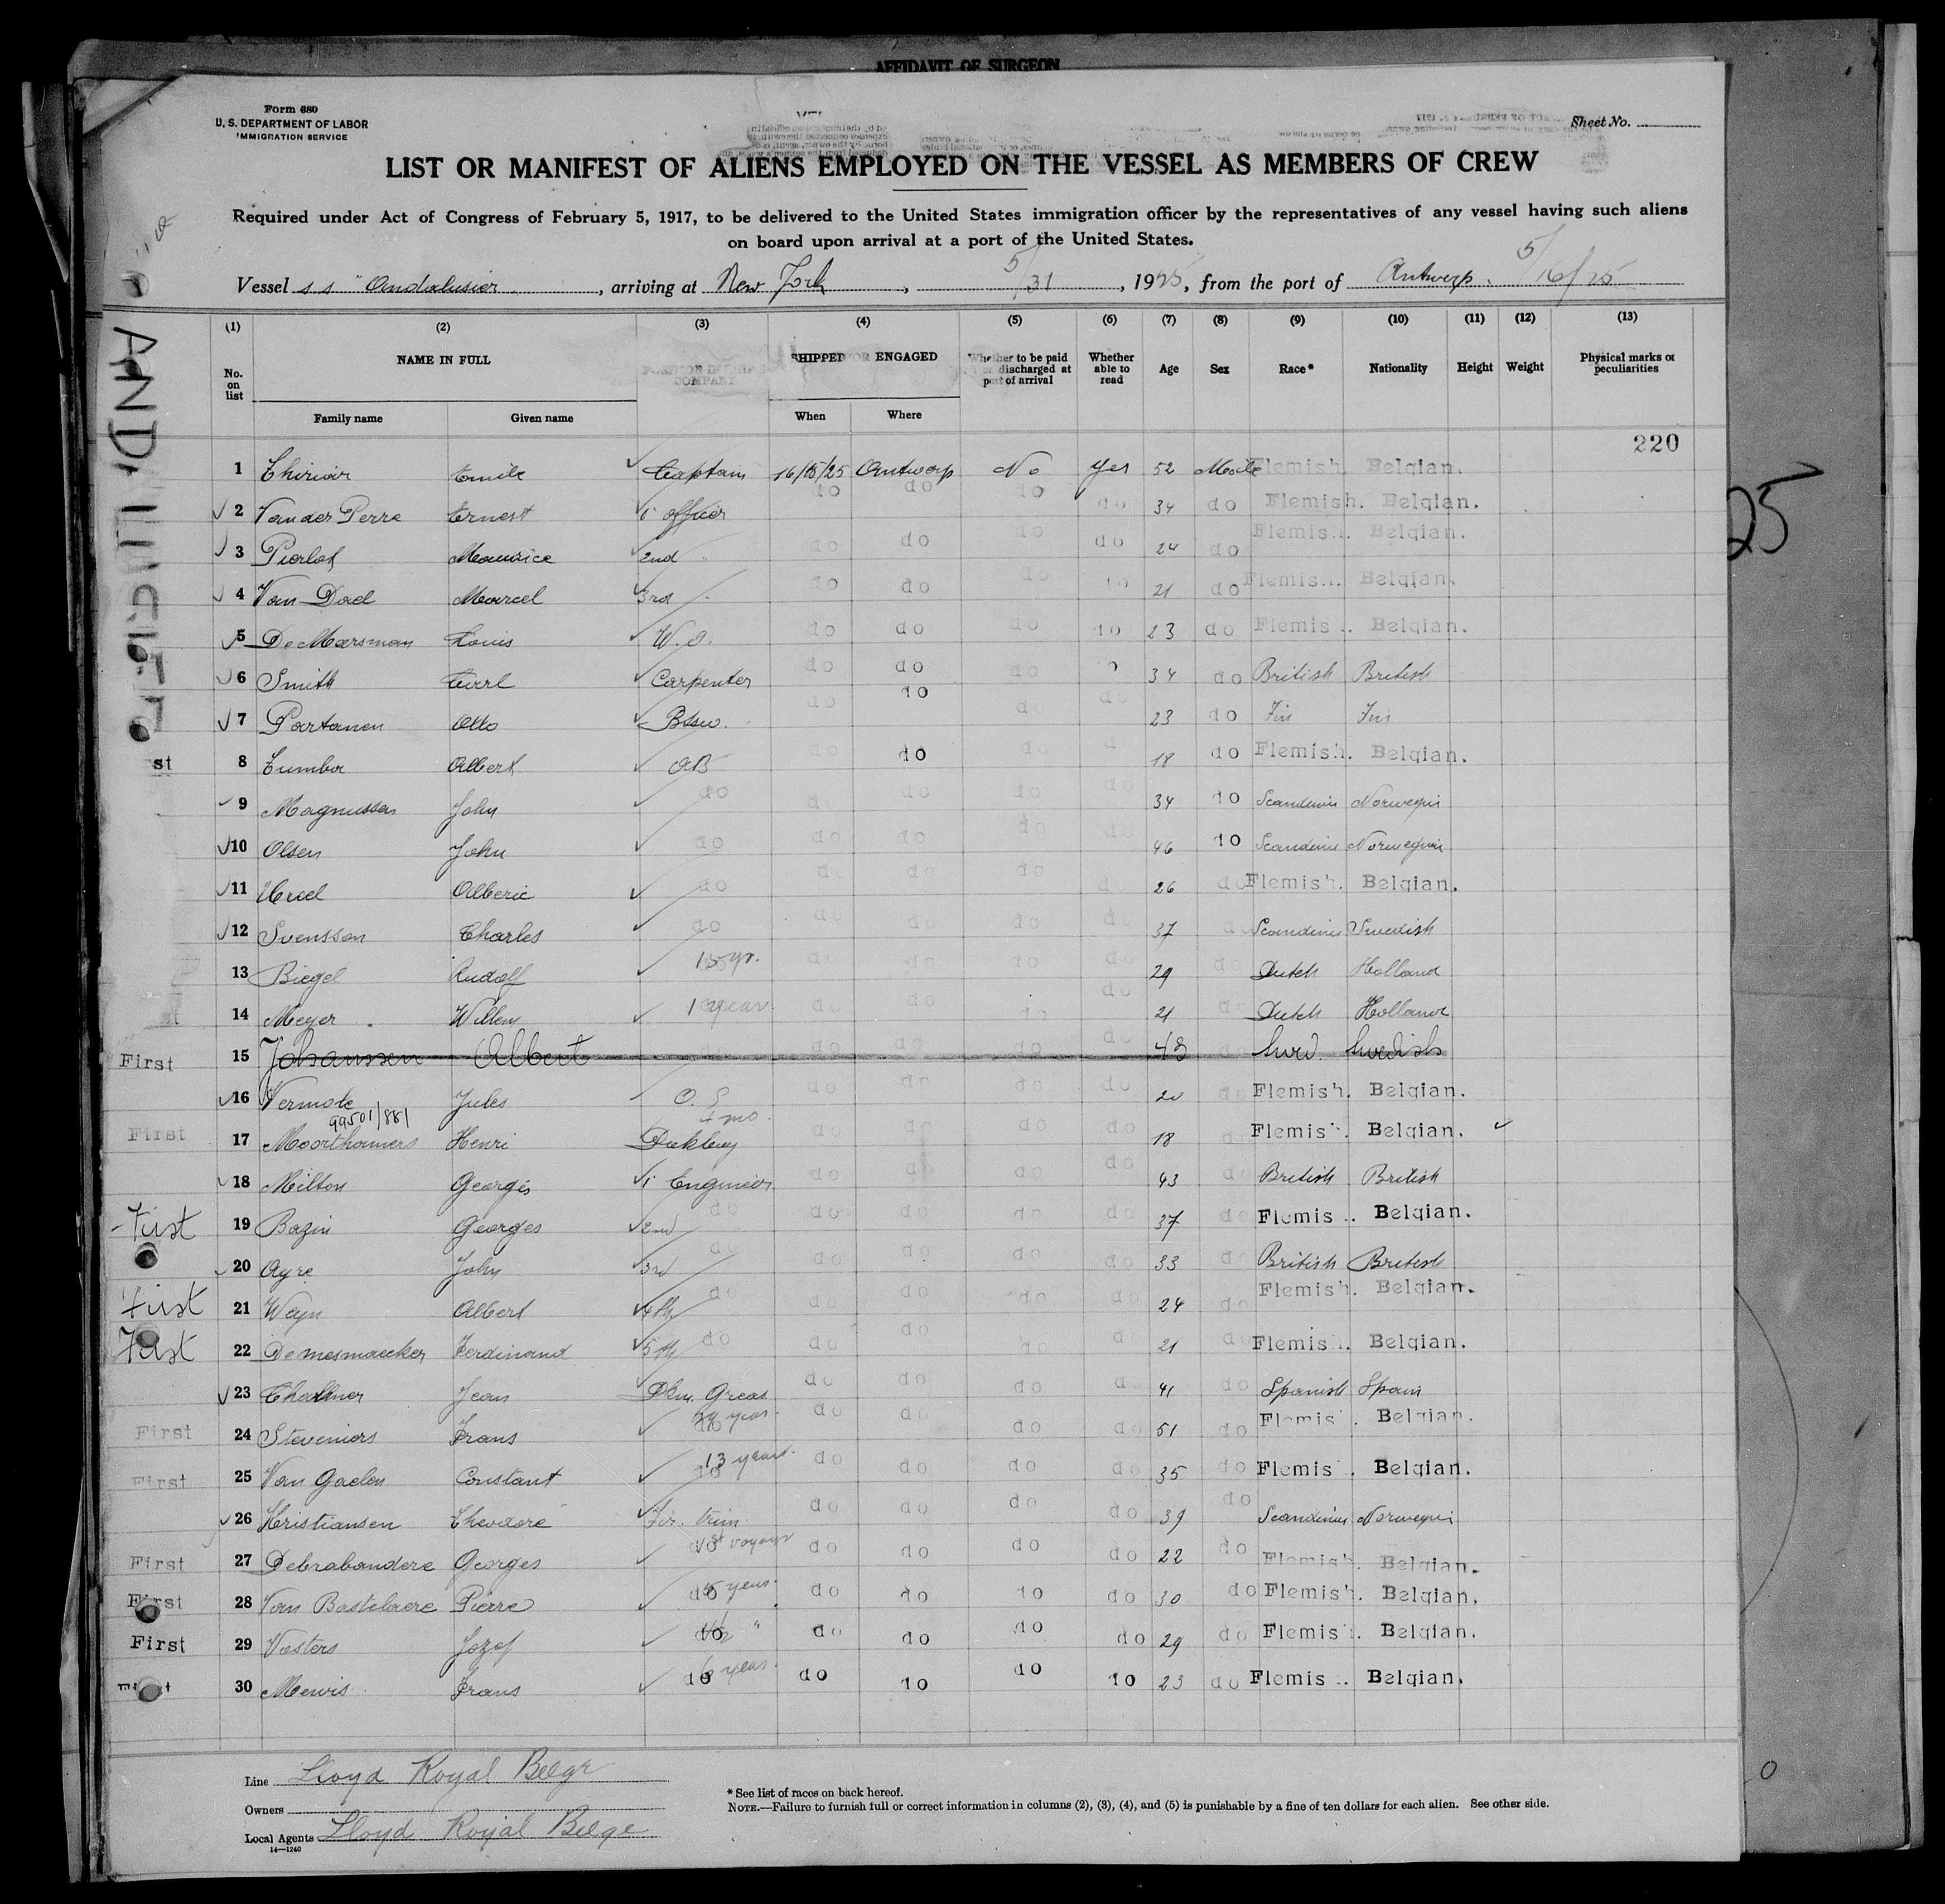 AFFIDAVIT OF SURGEON
Form 680
U. S. DEPARTMENT OF LABOR
IMMIGRATION SERVICE
Sheet No.
LIST OR MANIFEST OF ALIENS EMPLOYED ON THE VESSEL AS MEMBERS OF CREW
Required under Act of Congress of February 5, 1917, to be delivered to the United States immigration officer by the representatives of any vessel having such aliens
on board upon arrival at a port of the United States.
Vessel s s "Andalusier , arriving at New York , 5/31 , 1925, from the port of Antwerp. 5/16/25
(1) (2) (3) (4) (5) (6) (7) (8) (9) (10) (11) (12) (13)
No. on list NAME IN FULL Family name Given name POSITION IN COMPANY SHIPPED OR ENGAGED When Where Whether to be paid discharged at port of arrival Whether able to read Age Sex Race* Nationality Height Weight Physical marks or peculiarities
220
1 Emile Captain 16/5/25 Antwerp No Yes 52 Male Flemish. Belgian.
2 Van der Perre Ernest 1 officer do do do do 34 do Flemish. Belgian.
3 Pierlot Maurice 2nd do do do do 24 do Flemish. Belgian.
4 Van Dael Marcel 3rd do do do do 21 do Flemish. Belgian.
5 De Marsman Louis W.O. do do do do 23 do Flemish. Belgian.
6 Smith Carpenter do do do 34 do British British
7 Partanen Otto Btsw. do do do do 23 do Fin Fin
st 8 Albert AB do do do do 18 do Flemish. Belgian.
9 Magnussen John do do do do do 34 do Norwegin
10 Olsen John do do do do do 46 do Norwegin
11 Alberic do do do do do 26 do Flemish. Belgian.
12 Svensson Charles do do do do do 37 do Swedish
13 Biegel Rudolf 15 yr. do do do do 29 do Dutch Holland
14 Meyer Willem do do do do 21 do Dutch Holland
First 15 Johanssen Albert do do do do 48 Swedish
16 Vermote Jules O.S do do do do 20 do Flemish. Belgian.
99501/881
First 17 Moorthamers Henri do do do do 18 do Flemish. Belgian.
18 Milton Georges 1 Engineer do do do do 43 do British British
First 19 Bazin Georges 2nd do do do do do 37 do Flemish. Belgian.
20 Ayre John 3rd do do do do do 33 do British British
First 21 Weyn Albert 4th do do do do do 24 do Flemish. Belgian.
First 22 Demesmaecker Ferdinand 5th do do do do do 21 do Flemish. Belgian.
23 Jean Dkm. Greas. do do do do 41 do Spanish Spain
First 24 Steveniers Frans do do do do do 51 do Flemish. Belgian.
First 25 Van Gaelen Constant 13 years. do do do do do 35 do Flemish. Belgian.
26 Kristiansen Theodore Fir. trim. do do do do 39 do Norwegin
First 27 Debrabandere Georges 1st voyage do do do do do 22 do Flemish. Belgian.
First 28 Van Bastelaere Pierre do do do do do 30 do Flemish. Belgian.
First 29 Vosters Jozef do do do do do 29 do Flemish. Belgian.
First 30 Mewis Frans do 6 year. do do do do 23 do Flemish. Belgian.
Line Lloyd Royal Belge
Owners
Local Agents Lloyd Royal Belge
14—1240
* See list of races on back hereof.
NOTE.—Failure to furnish full or correct information in columns (2), (3), (4), and (5) is punishable by a fine of ten dollars for each alien. See other side.
25